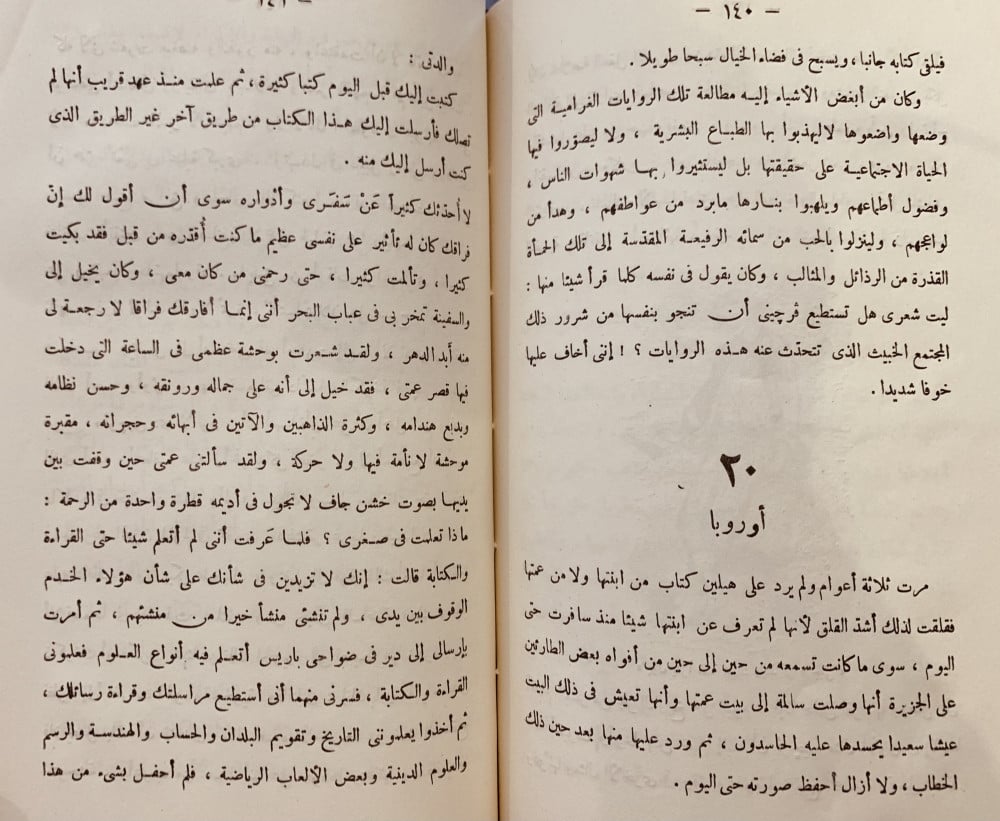 — ١٤٠ —
فيلقى كتابه جانبا، ويسبح فى فضاء الخيال سبحا طويلا .
وكان من أبغض الأشياء إليه مطالعة تلك الروايات الغرامية التى
وضعها واضعوها لا ليهذبوا بها الطباع البشرية ، ولا ليصوّروا فيها
الحياة الاجتماعية على حقيقتها بل ليستثيروا بها شهوات الناس ،
وفضول أطماعهم ويلهبوا بنارها مابرد من عواطفهم ، وهدأ من
لواعجهم ، ولينزلوا بالحب من سمائه الرفيعة المقدّسة إلى تلك الحمأة
القذرة من الرذائل والمثالب ، وكان يقول فى نفسه كلما قرأ شيئا منها :
ليت شعرى هل تستطيع ڤرچينى أن تنجو بنفسها من شرور ذلك
المجتمع الخبيث الذى تتحدّث عنه هذه الروايات ؟ ! إنى أخاف عليها
خوفا شديدا .
٢٠
أوروبا
مرت ثلاثة أعوام ولم يرد على هيلين كتاب من ابنتها ولا من عمتها
فقلقت لذلك أشدّ القلق لأنها لم تعرف عن ابنتها شيئا منذ سافرت حتى
اليوم ، سوى ما كانت تسمعه من حين إلى حين من أفواه بعض الطارئين
على الجزيرة أنها وصلت سالمة إلى بيت عمتها وأنها تعيش فى ذلك البيت
عيشا سعيدا يحسدها عليه الحاسدون ، ثم ورد عليها منها بعد حين ذلك
الخطاب ، ولا أزال أحفظ صورته حتى اليوم .
— ١٤١ —
والدتى :
كتبت إليك قبل اليوم كتبا كثيرة ، ثم علمت منذ عهد قريب أنها لم
تصلك فأرسلت إليك هذا الكتاب من طريق آخر غير الطريق الذى
كنت أرسل إليك منه .
لا أُحدّثك كثيراً عَنْ سَفَرى وأدْواره سوى أن أقول لك إنّ
فراقك كان له تأثير على نفسى عظيم ما كنت أُقدره من قبل فقد بكيت
كثيرا ، وتألمت كثيرا ، حتى رحمنى من كان معى ، وكان يخيل إلى
والسفينة تمخر بى فى عباب البحر أننى إنما أفارقك فراقا لا رجعة لى
منه أبد الدهر ، ولقد شعرت بوحشة عظمى فى الساعة التى دخلت
فيها قصر عمتى ، فقد خيل إلى أنه على جماله ورونقه ، وحسن نظامه
وبديع هندامه ، وكثرة الذاهبين والآتين فى أبهائه وحجراته ، مقبرة
موحشة لا نأمة فيها ولا حركة ، ولقد سألتنى عمتى حين وقفت بين
يديها بصوت خشن جاف لا تجول فى أديمه قطرة واحدة من الرحمة :
ماذا تعلمت فى صغرى ؟ فلما عَرفت أننى لم أتعلم شيئا حتى القراءة
والكتابة قالت : إنك لا تزيدين فى شأنك على شأن هؤلاء الخدم
الوقوف بين يدى ، ولم تنشئى منشأ خيرا من منشئهم ، ثم أمرت
بإرسالى إلى دير فى ضواحى باريس أتعلم فيه أنواع العلوم فعلمونى
القراءة والكتابة ، فسرنى منهما أنى أستطيع مراسلتك وقراءة رسائلك ،
ثم أخذوا يعلموننى التاريخ وتقويم البلدان والحساب والهندسة والرسم
والعلوم الدينية وبعض الألعاب الرياضية ، فلم أحفل بشىء من هذا